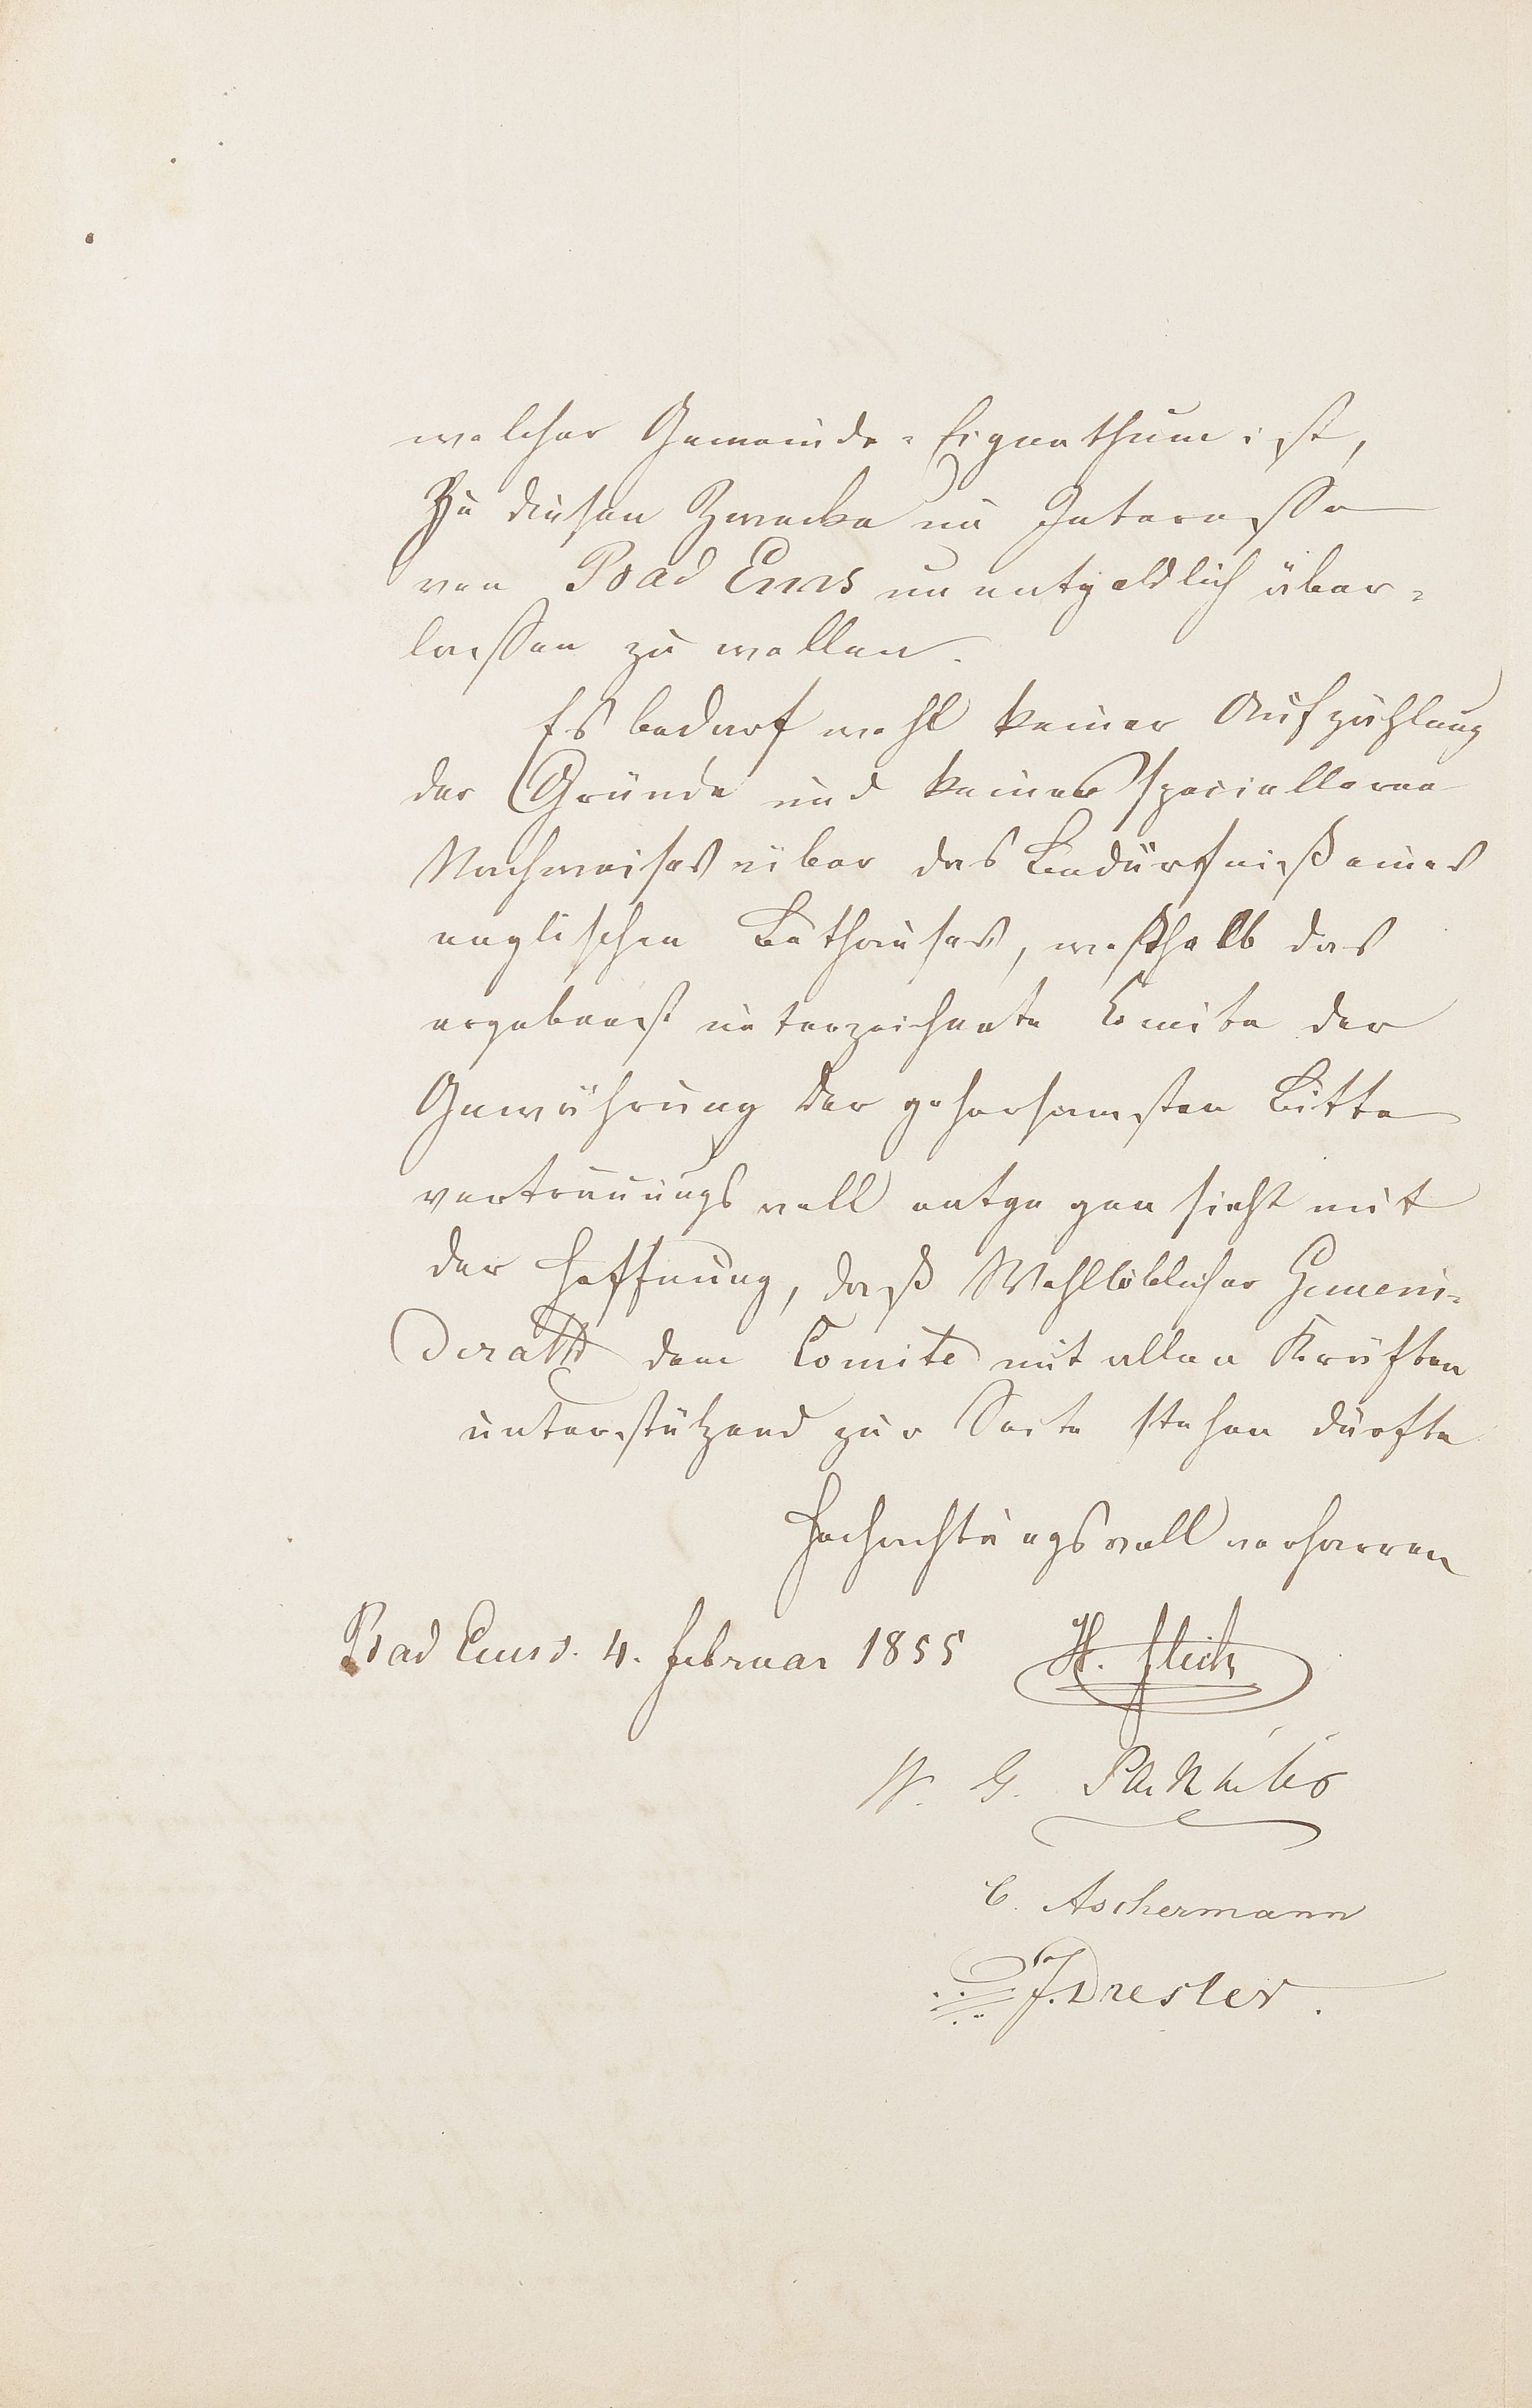 welcher Gemeinde-Eigenthum ist,
Zu diesen Zwecke im Interesse
von Bad Ems unentgeldlich über-
lassen zu wollen.
Es bedarf wohl keiner Aufzählung
der Gründe und keines specielleren
Nachweises über das Bedürfniß eines
englischen Bethauses, weßhalb das
ergebenst unterzeichnete Comite der
Gewährung der gehorsamsten Bitte
vertrauungsvoll entgegen sieht mit
der Hoffnung, daß Wohllöblicher Gemein-
derath dem Comite mit allen Kräften
unterstützend zur Seite stehen dürfte
Hochachtungsvoll verharren
Bad Ems. 4. Februar 1855 H.
W. G.
C. Aschermann
J. Dresler.